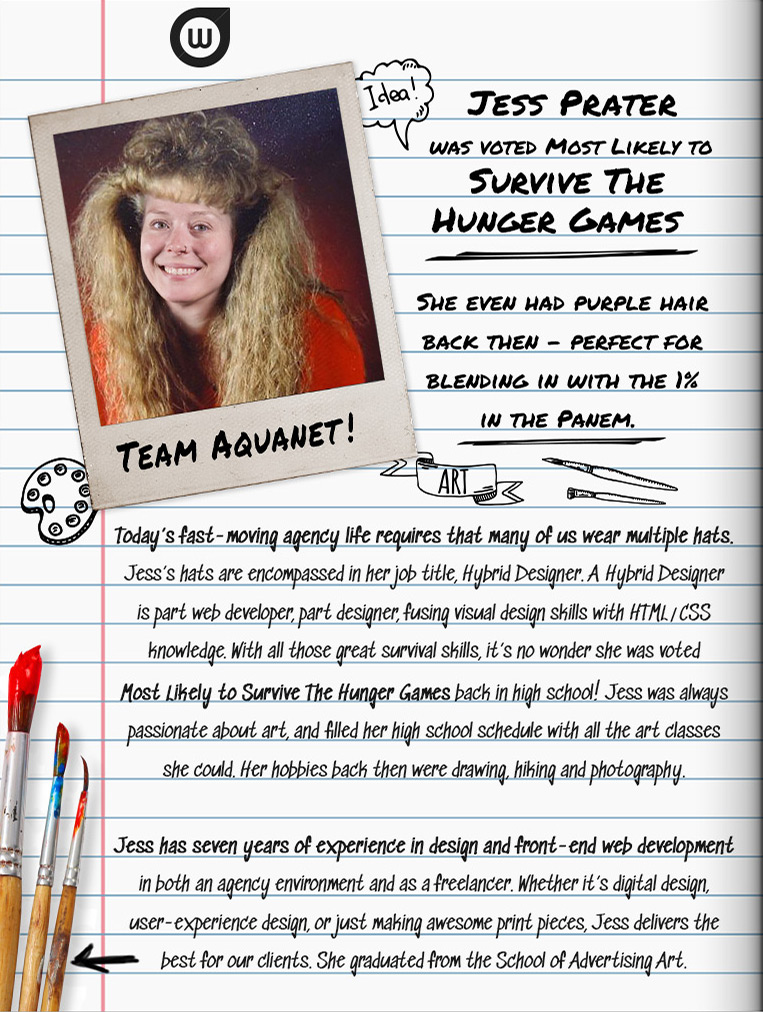 w
Idea!
JESS PRATER
WAS VOTED MOST LIKELY TO
SURVIVE THE
HUNGER GAMES
SHE EVEN HAD PURPLE HAIR
BACK THEN – PERFECT FOR
BLENDING IN WITH THE 1%
IN THE PANEM.
TEAM AQUANET!
ART
Today's fast-moving agency life requires that many of us wear multiple hats.
Jess's hats are encompassed in her job title, Hybrid Designer. A Hybrid Designer
is part web developer, part designer, fusing visual design skills with HTML/CSS
knowledge. With all those great survival skills, it's no wonder she was voted
Most Likely to Survive The Hunger Games back in high school! Jess was always
passionate about art, and filled her high school schedule with all the art classes
she could. Her hobbies back then were drawing, hiking and photography.
Jess has seven years of experience in design and front-end web development
in both an agency environment and as a freelancer. Whether it's digital design,
user-experience design, or just making awesome print pieces, Jess delivers the
best for our clients. She graduated from the School of Advertising Art.